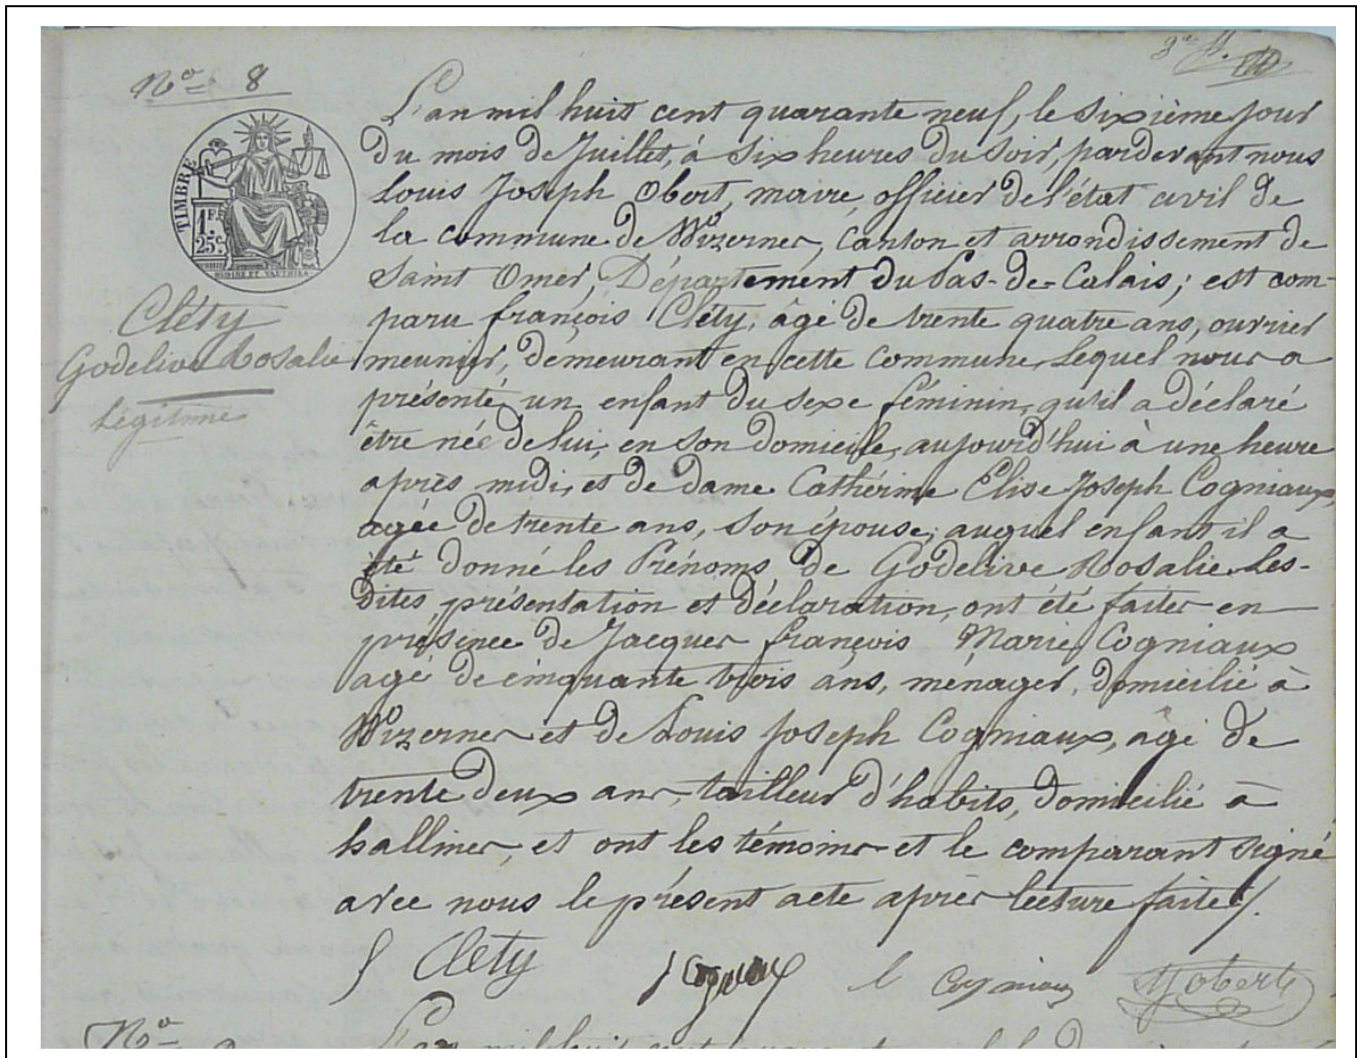 N° 8
TIMBRE
1 F.
25c
Cléty
Godelive Rosalie
Légitime
L'an mil huit cent quarante neuf, le sixième jour
du mois de Juillet, à six heures du soir, pardevant nous
Louis Joseph Obert, maire, officier de l'état civil de
la commune de Wizernes, Canton et arrondissement de
Saint Omer, Département du Pas-de-Calais; est com-
paru françois Cléty, âgé de trente quatre ans, ouvrier
meunier, demeurant en cette commune, Lequel nous a
présenté un enfant du sexe féminin, qu'il a déclaré
être née de lui, en son domicile, aujourd'hui à une heure
après midi, et de dame Cathérine Elise Joseph Cogniaux,
agée de trente ans, son épouse; auquel enfant il a
été donné les Prénoms de Godelive Rosalie. Les-
dites présentation et déclaration, ont été faites en
présence de Jacques françois Marie Cogniaux
agé de cinquante trois ans, ménager, domicilié à
Wizernes et de Louis Joseph Cogniaux, âgé de
trente deux ans, tailleur d'habits, domicilié à
hallines, et ont les témoins et le comparant signé
avec nous le présent acte après lecture faite.
f Cléty
l Cogniaux
Obert
N°